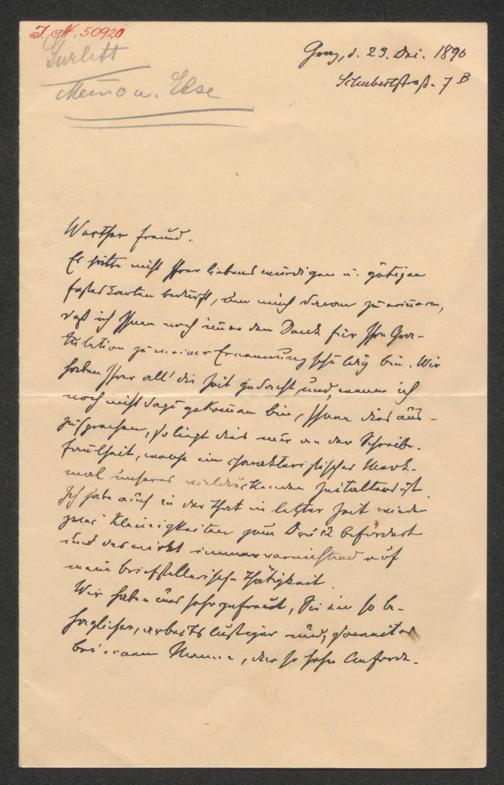 J. N. 50920
Gurlitt
Meino u. Else
Graz, d. 29. Dez. 1890
Schubertstraß. 7 B
Werther Freund.
Es hätte nicht Ihrer liebenswürdigen u. gütigen
bedurft, um mich daran zu erinnern,
daß ich Ihnen noch immer den Dank für Ihre Gra-
tulation zu meiner Ernennung schuldig bin. Wir
haben Ihrer all' die Zeit gedacht und, wenn ich
noch nicht dazu gekommen bin, Ihnen dies aus-
zusprechen, so liegt dies nur an der Schreib-
faulheit, welche ein charakteristisches Merk-
mal unseres vieldruckenden Zeitalters ist.
Ich habe auch in der That in letzter Zeit wieder
zwei Kleinigkeiten zum Druck befördert
und das wirkt immer vernichtend auf
meine briefstellerische Thätigkeit.
Wir haben uns sehr gefreut, Sie in so be-
haglicher, arbeitslustiger und,
bei einem Manne, der so hohe Anforde-